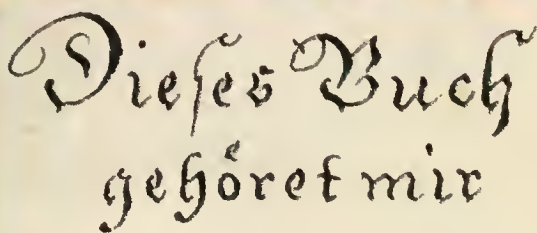 Dieſes Buch
gehöret mir